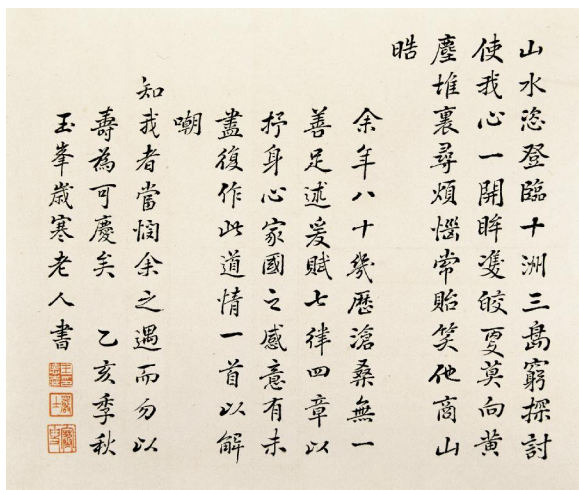 山水恣登臨十洲三島窮探討
使我心一開眸雙皎更莫向黃
塵堆裏尋煩惱常貽笑他商山
晧
余年八十幾歷滄桑無一
善足述爰賦七律四章以
抒身心家國之感意有未
盡復作此道情一首以解
嘲
知我者當憫余之遇而勿以
壽為可慶矣 乙亥季秋
玉峯歲寒老人書